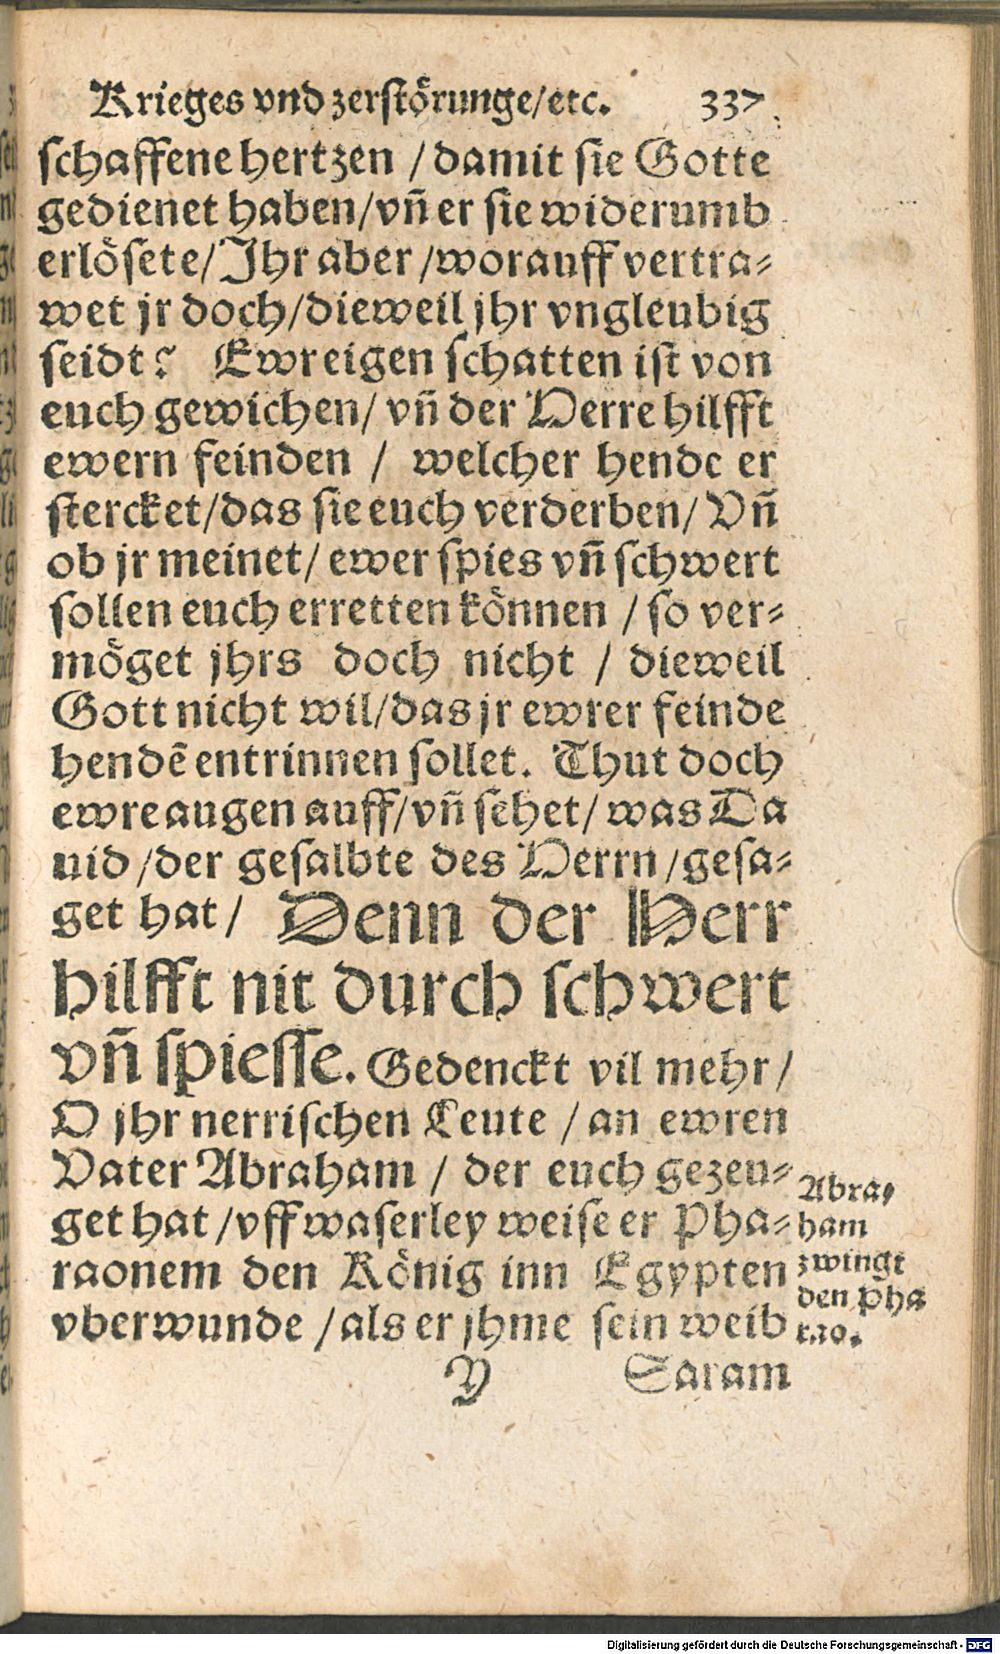 Krieges vnd zerstörunge/etc. 337
schaffene hertzen / damit sie Gotte
gedienet haben/vñ er sie widerumb
erlösete/Ihr aber /worauff vertra-
wet jr doch/dieweil jhr vngleubig
seidt? Ewr eigen schatten ist von
euch gewichen/ vñ der Herre hilfft
ewern feinden / welcher hende er
stercket/das sie euch verderben/ Vñ
ob jr meinet/ ewer spies vñ schwert
sollen euch erretten können / so ver-
möget jhrs doch nicht / dieweil
Gott nicht wil/das jr ewrer feinde
hendē entrinnen sollet. Thut doch
ewre augen auff/vñ sehet/ was Da
uid /der gesalbte des Herrn /gesa-
get hat/ Denn der Herr
hilfft nit durch schwert
vñ spiesse. Gedenckt vil mehr/
O jhr nerrischen Leute / an ewren
Vater Abraham / der euch gezeu-
get hat /vff waserley weise er Pha-
raonem den König inn Egypten
vberwunde /als er jhme sein weib
Abra-
ham
zwingt
den Pha
r.10.
Y Saram
Digitalisierung gefördert durch die Deutsche Forschungsgemeinschaft - DFG